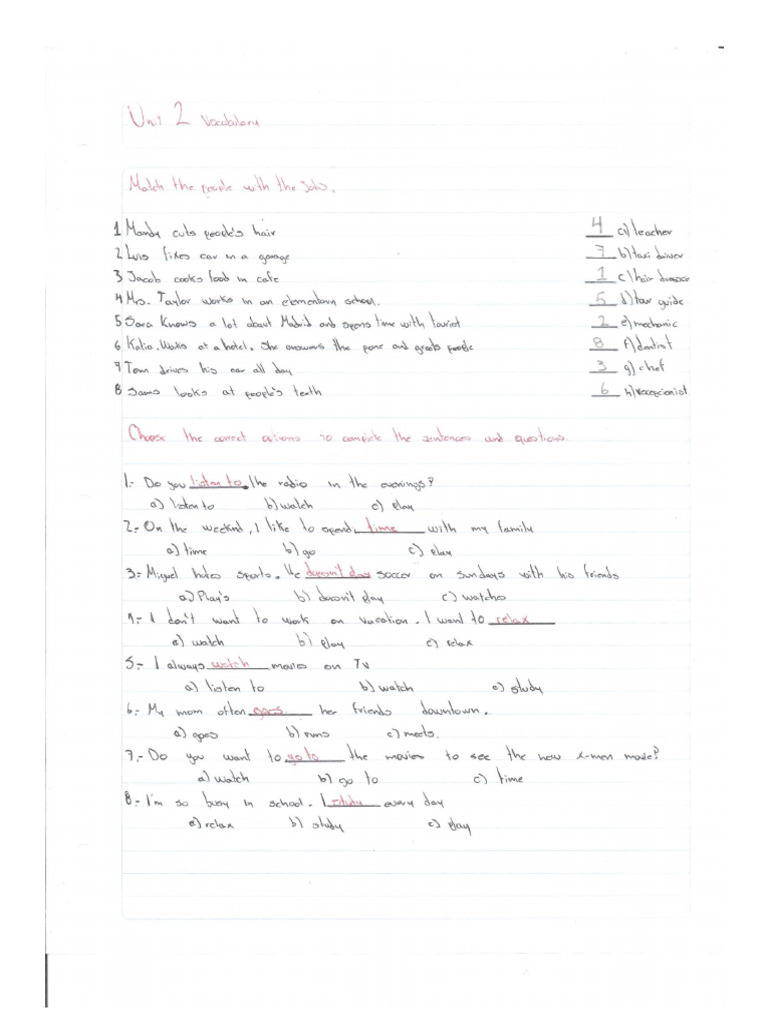 Unit 2 Vocabulary
Match the people with the Jobs.
1 Mandy cuts people's hair 4 a) teacher
2 Luis fixes car in a garage 7 b) taxi driver
3 Jacob cooks food in cafe 1 c) hair dresser
4 Mrs. Taylor works in an elementary school. 5 d) tour guide
5 Sara Knows a lot about Madrid and spens time with tourist 2 e) mechanic
6 Katia. Works at a hotel. She answers the pone and greets people 8 f) dentist
7 Tom drives his car all day 3 g) chef
8 Sams looks at people's teeth 6 h) recepcionist
Choose the correct actions to complete the sentences and questions.
1.- Do you listen to the radio in the evenings?
a) listen to b) watch c) play
2.- On the weeknd, I like to spend time with my family
a) time b) go c) play
3.- Miguel hates sports. He doesn't play soccer on sundays with his friends
a) Play's b) doesn't play c) watchs
4.- I don't want to work on vacation. I want to relax
a) watch b) play c) relax
5.- I always watch movies on TV
a) listen to b) watch c) study
6.- My mom often goes her friends downtown.
a) goes b) runs c) meets.
7.- Do you want to go to the movies to see the new x-men movie?
a) watch b) go to c) time
8.- I'm so busy in school. I study every day
a) relax b) study c) play